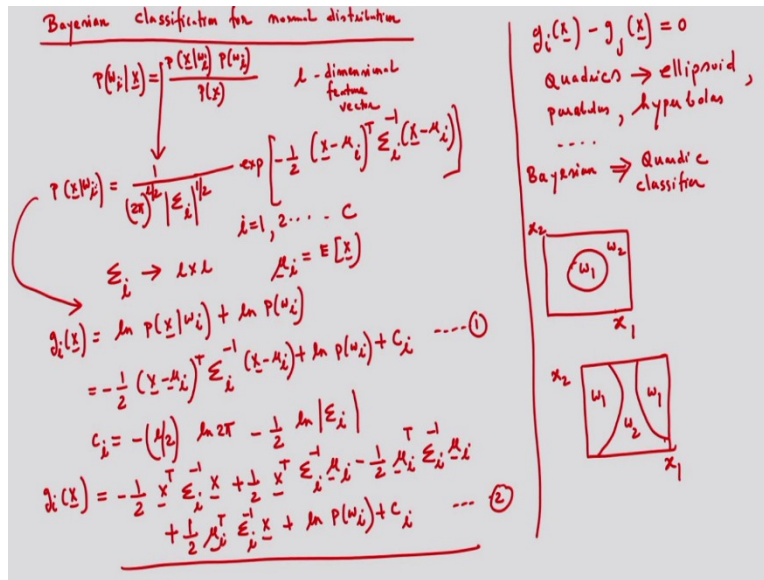 Bayesian classification for normal distribution
P(ω_i|x̲) = P(x̲|ω_i) P(ω_i) / P(x)
l - dimensional
feature
vector
P(x̲|ω_i) = 1 / ((2π)^{l/2} |Σ_i|^{1/2}) exp[-1/2 (x̲-μ_i)^T Σ_i^{-1} (x̲-μ_i)]
i=1, 2.... C
Σ_i → l x l μ̲_i = E[x̲]
g_i(x̲) = ln P(x̲|ω_i) + ln P(ω_i)
= -1/2 (x̲-μ̲_i)^T Σ_i^{-1} (x̲-μ_i) + ln P(ω_i) + C_i ----①
C_i = -(l/2) ln 2π - 1/2 ln |Σ_i|
g_i(x̲) = -1/2 x̲^T Σ_i^{-1} x̲ + 1/2 x̲^T Σ_i^{-1} μ̲_i - 1/2 μ̲_i^T Σ_i^{-1} μ̲_i
+ 1/2 μ̲_i^T Σ_i^{-1} x̲ + ln P(ω_i) + C_i --- ②
g_i(x̲) - g_j(x̲) = 0
Quadrics → ellipsoid,
parabolas, hyperbolas
....
Bayesian ⇒ Quadric
classifier
x_2
ω_1 ω_2
x_1
x_2
ω_1 ω_2 ω_1
x_1